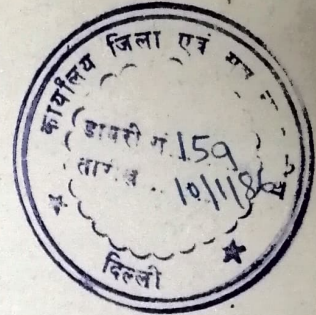 कार्यालय जिला एवं
डायरी नं. 159
तारीख .. 10/1/86
दिल्ली